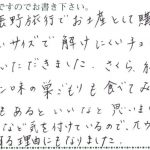 ですのでお書き下さい。
長野旅行でお土産として購
いサイズで解けにくいチョ
いただきました。さくら、
ン味の巣ごもりも食べてみ
もあるといいなと思いま
など気を付けているので、カ
する理由にもなりました。